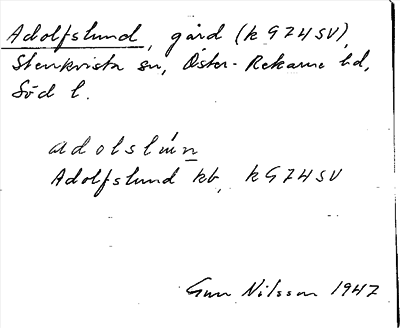 Adolfslund, gård (k G74SV),
Stenkvista sn, Öster-Rekarne hd,
Söd l.
adolslún
Adolfslund kb, k G74SV
Gun Nilsson 1947